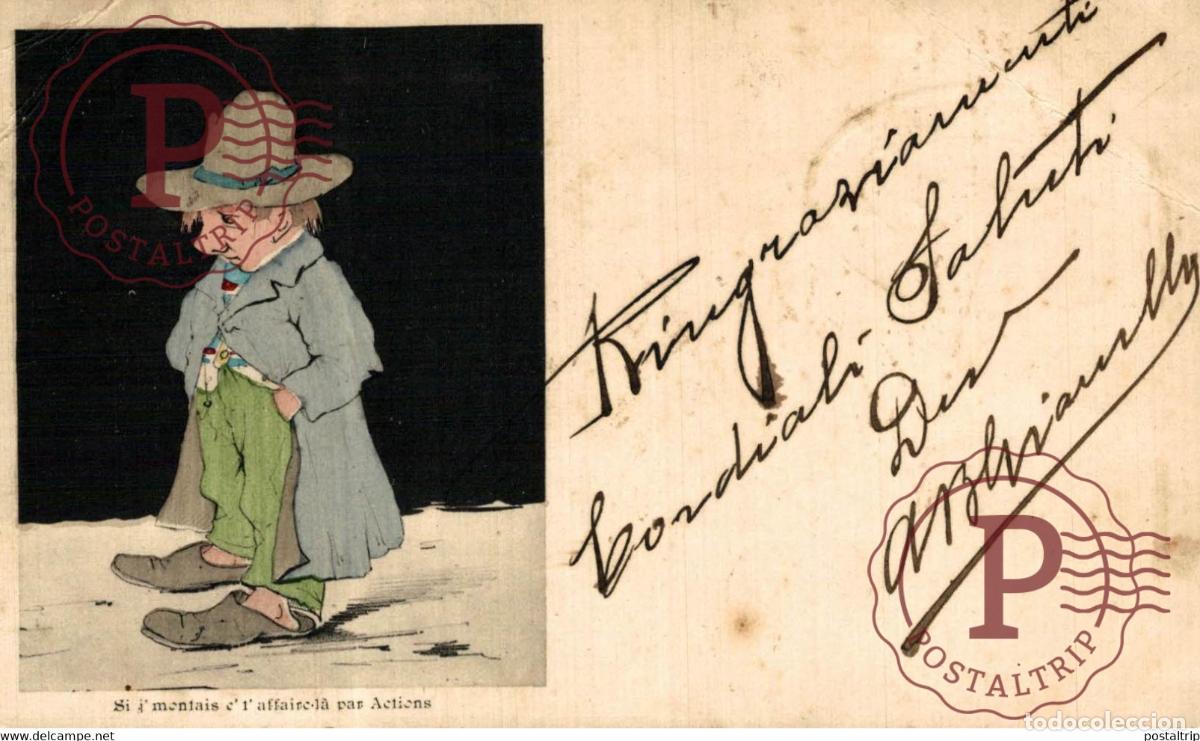 Ringraziamenti
cordiali Saluti
Dev
Si j'montais c't'affaire-là par Actions
P
POSTALTRIP
P
POSTALTRIP
todocoleccion
www.delcampe.net
postaltrip